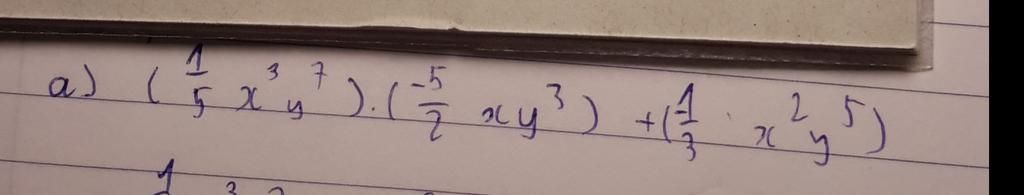 a) (1/5 x³y⁷).(-5/2 xy³) +(1/3 · x²y⁵)